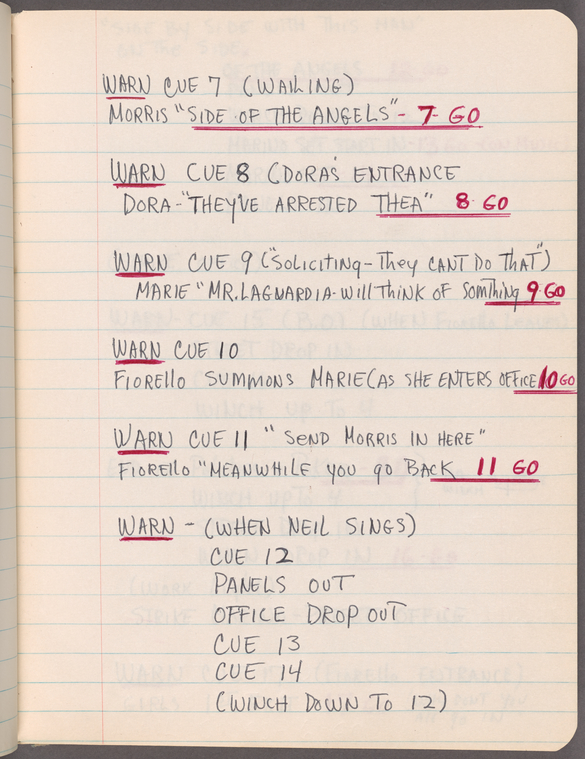 WARN CUE 7 (WAILING)
MORRIS "SIDE OF THE ANGELS" - 7- GO
WARN CUE 8 (DORA'S ENTRANCE
DORA - "THEY'VE ARRESTED THEA" 8- GO
WARN CUE 9 ("SOLICITING - They CAN'T DO THAT")
MARIE "MR. LAGUARDIA - will Think OF SOMThing 9-GO
WARN CUE 10
FIORELLO SUMMONS MARIE (AS SHE ENTERS OFFICE 10 GO
WARN CUE 11 "SEND MORRIS IN HERE"
FIORELLO "MEANWHILE YOU GO BACK 11 GO
WARN - (WHEN NEIL SINGS)
CUE 12
PANELS OUT
OFFICE DROP OUT
CUE 13
CUE 14
(WINCH DOWN TO 12)